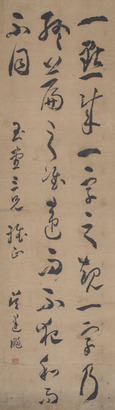 一點成一字之規一字乃
終篇之準違而不犯和而
不同
三兄 雅正